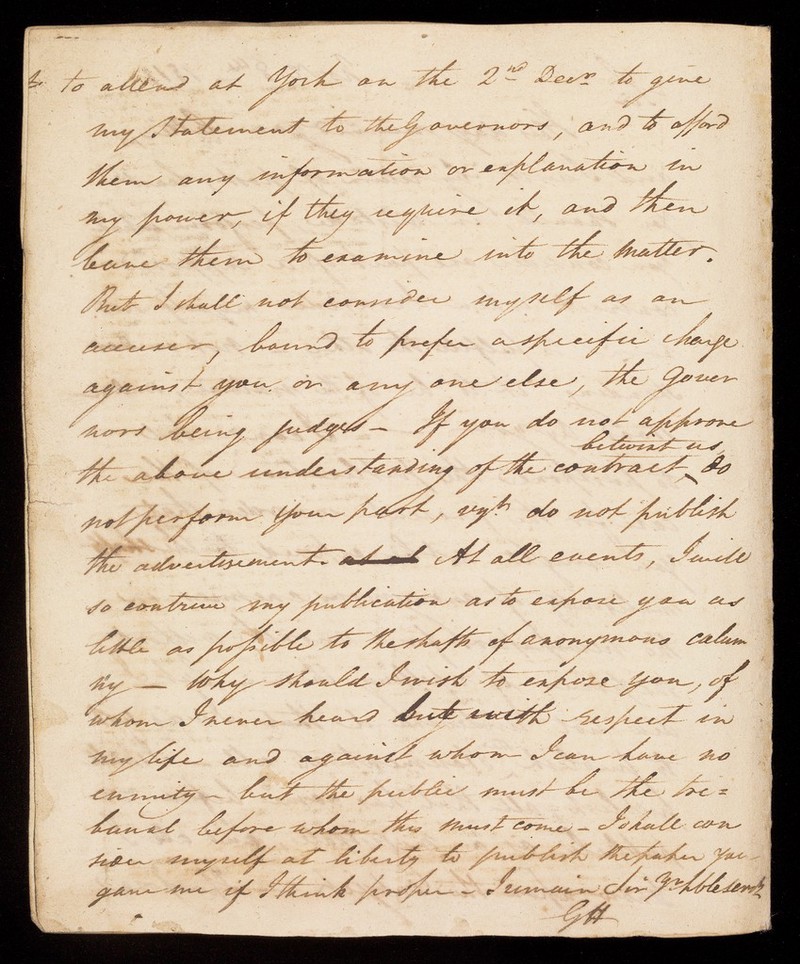 to attend at York on the 2nd Decr. to give
my Statement to the Governors, and to afford
them any information or explanation in
my power, if they require it, and then
leave them to examine into the Matter.
But I shall not consider myself as an
accuser, bound to prefer a specific charge
against you or any one else, the Gover
nors being judges – If you do not approve
betwixt us
the above understanding of the contract, do
not perform your part, do not publish
the advertisement. At all events, I will
so contrive my publication as to expose you as
little as possible to the shafts of anonymous calum
ny – Why should I wish to expose you, of
whom I never heard but with respect in
my life and against whom I can have no
enmity – but the public must be the tri=
bunal before whom this must come – I shall con
sider myself at liberty to publish the paper you
gave me if I think proper – I remain Sir Yr. hble servt
GH